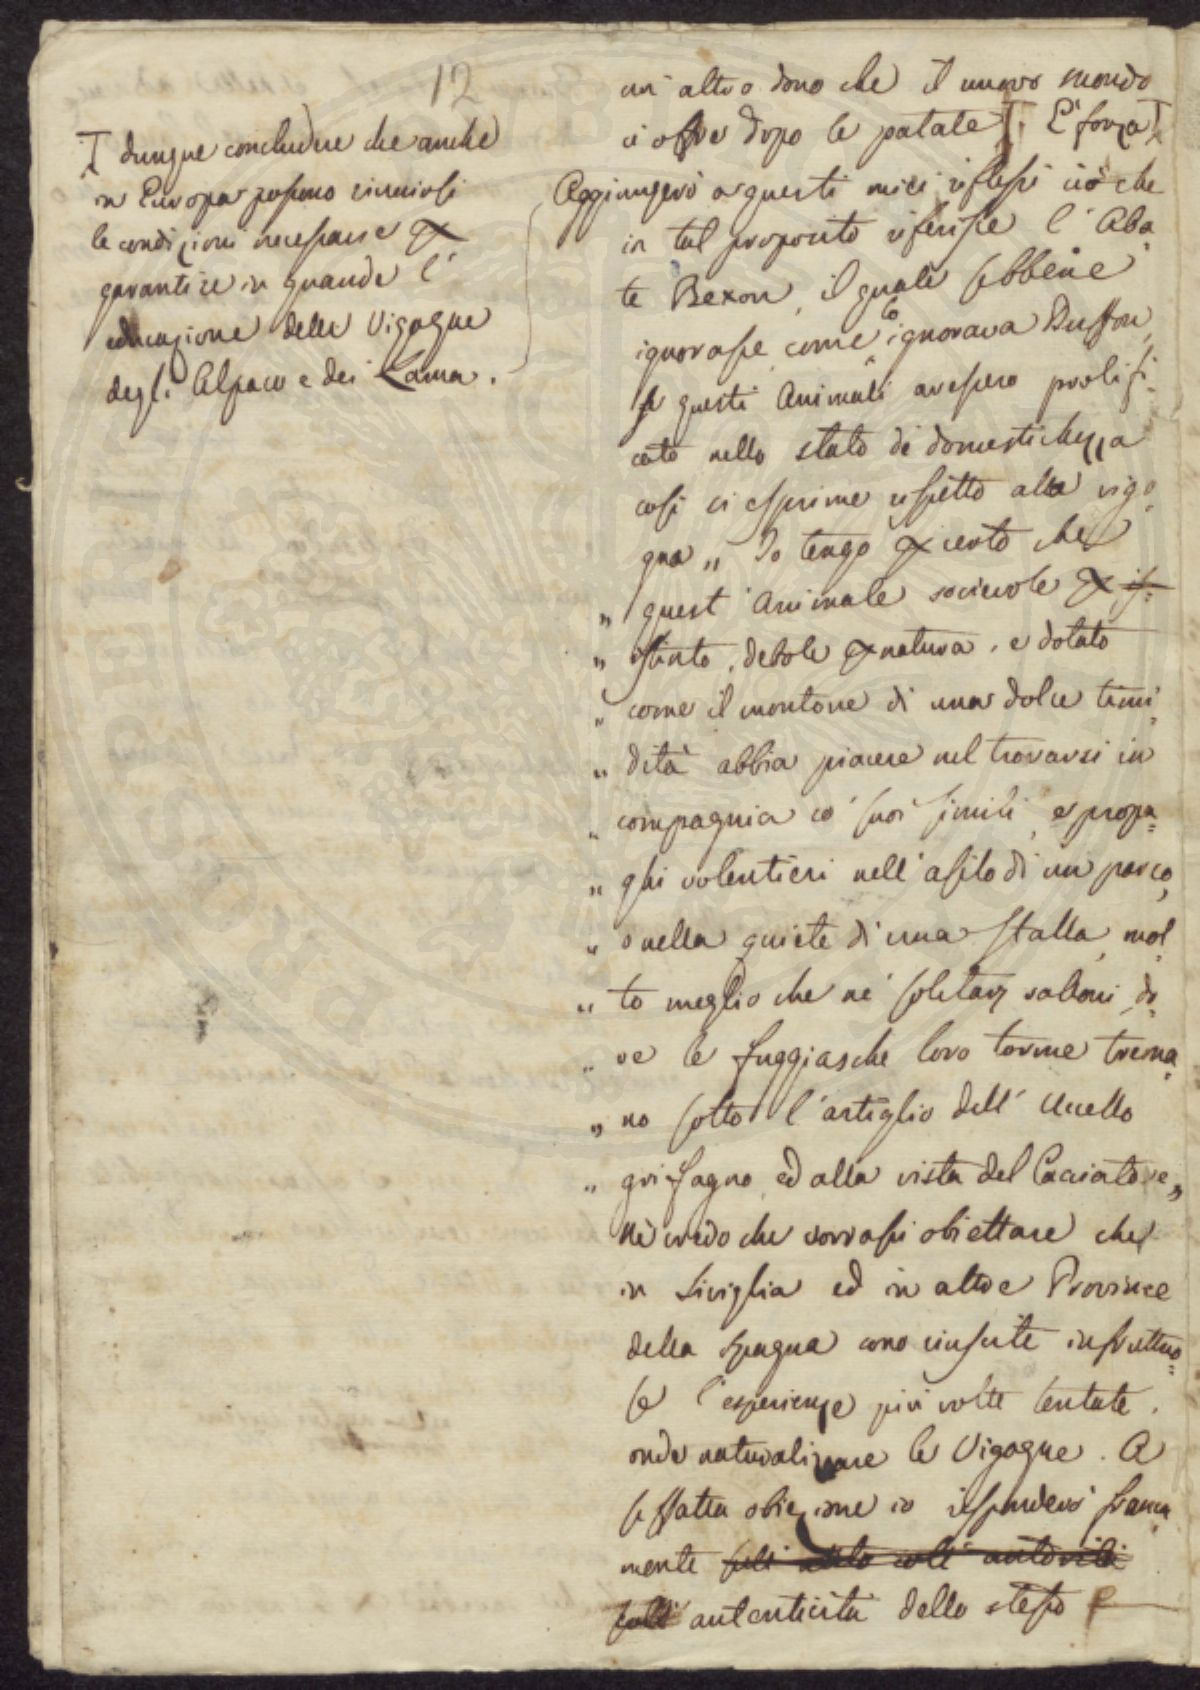 12
I dunque concludere che anche
in Europa possono riunirsi
le condizioni necessarie per
garantire in grande l'
educazione delle Vigogne
degli Alpaco e dei Lama.
un' altro dono che il nuovo mondo
ci offre dopo le patate I. E' forza I
Aggiungerò a questi miei riflessi ciò che
in tal proposito riferisce l' Aba=
te Bexon, il quale sebbene
ignorasse, come lo ignorava Buffon,
se questi Animali avessero prolifi=
cato nello stato di domestichezza
così si esprime rispetto alla vigo=
gna „ Io tengo per certo che
„ quest' Animale socievole per is=
„ istinto, debole per natura, e dotato
„ come il montone di una dolce timi=
„ dità abbia piacere nel trovarsi in
„ compagnia co' suoi simili, e propa=
„ ghi volentieri nell' asilo di un parco,
„ o nella quiete di una stalla, mol=
„ to meglio che ne' solitarj valloni, do=
„ ve le fuggiasche loro torme trema=
„ no sotto l' artiglio dell' Uccello
„ grifagno, ed alla vista del Cacciatore „
Nè credo che vorrassi obiettare che
in Siviglia ed in altre Province
della Spagna sono riuscite infruttuo=
se l' esperienze più volte tentate,
onde naturalizzare le Vigogne. A
siffatta obiezione io risponderò franca=
mente coll' autorità
sull' autenticità dello stesso